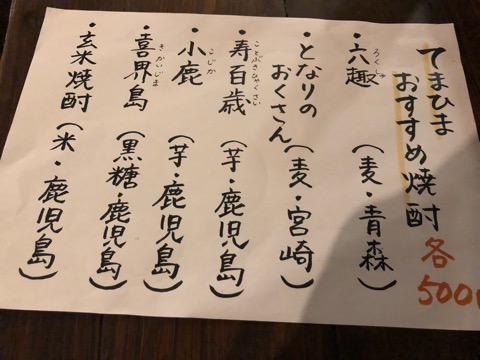 てまひま
おすすめ焼酎 各500
・六趣（麦・青森）
ろくしゅ
・となりのおくさん（麦・宮崎）
・寿百歳（芋・鹿児島）
ことぶきひゃくさい
・小鹿（芋・鹿児島）
こじか
・喜界島（黒糖・鹿児島）
きかいじま
・玄米焼酎（米・鹿児島）